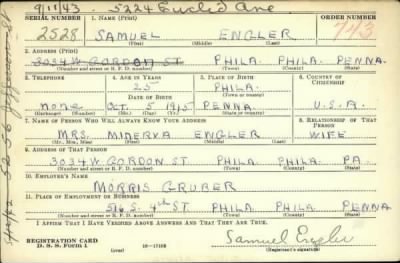 9/11/43 5224 Euclid Ave
SERIAL NUMBER 1. NAME (Print) ORDER NUMBER
2528 SAMUEL ENGLER 743
(First) (Middle) (Last)
2. ADDRESS (Print)
3034 W. GORDON ST. PHILA. PHILA. PENNA.
(Number and street or R. F. D. number) (Town) (County) (State)
3. TELEPHONE 4. AGE IN YEARS 5. PLACE OF BIRTH 6. COUNTRY OF CITIZENSHIP
25 PHILA.
DATE OF BIRTH (Town or county)
none Oct. 5 1915 PENNA. U.S.A.
(Exchange) (Number) (Mo.) (Day) (Yr.) (State or country)
7. NAME OF PERSON WHO WILL ALWAYS KNOW YOUR ADDRESS 8. RELATIONSHIP OF THAT PERSON
MRS. MINERVA ENGLER WIFE
(Mr., Mrs., Miss) (First) (Middle) (Last)
9. ADDRESS OF THAT PERSON
3034 W. GORDON ST. PHILA. PHILA. PA.
(Number and street or R. F. D. number) (Town) (County) (State)
10. EMPLOYER'S NAME
MORRIS GRUBER
11. PLACE OF EMPLOYMENT OR BUSINESS
516 S. 4th ST. PHILA. PHILA. PENNA.
(Number and street or R. F. D. number) (Town) (County) (State)
I AFFIRM THAT I HAVE VERIFIED ABOVE ANSWERS AND THAT THEY ARE TRUE.
REGISTRATION CARD
D. S. S. Form 1 (over) 16—17105 Samuel Engler
(Registrant's signature)